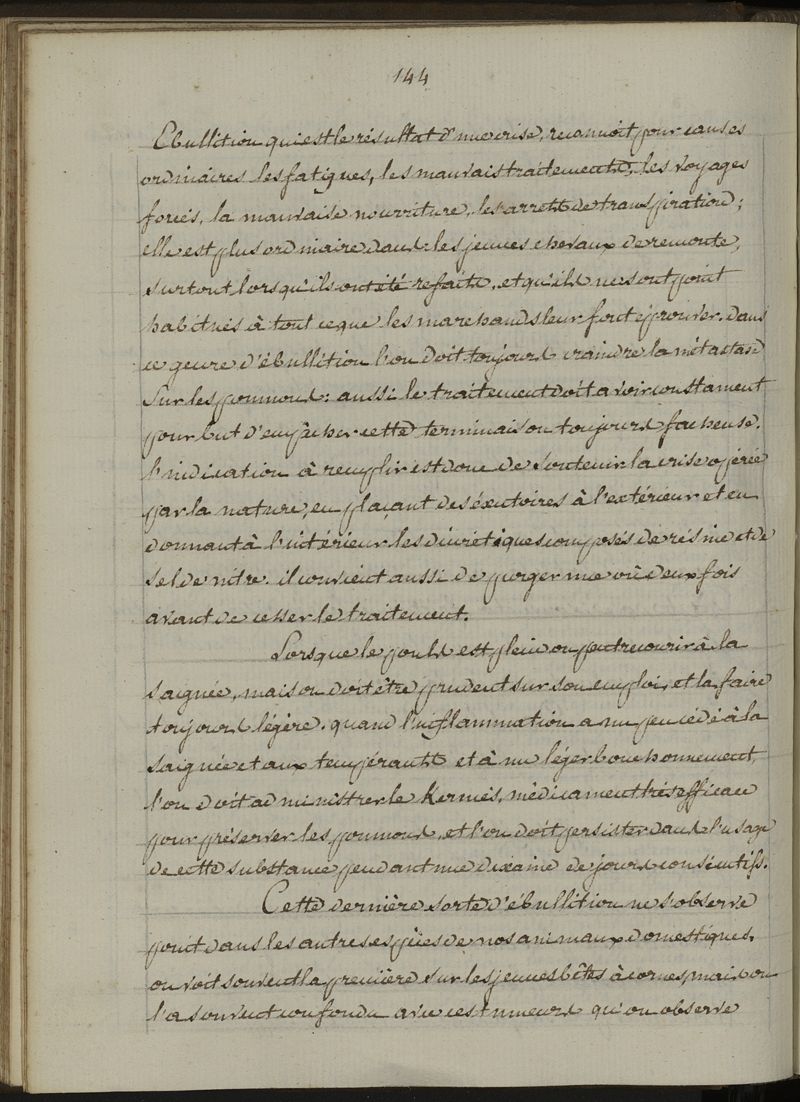 144
Ebullition qui est le résultat d'une crise, reconnoit pour causes
ordinaires les fatigues, les mauvais traitements, les voyages
forcés, la mauvaise nourriture, les arrets de transpiration;
elle est plus ordinaire dans les jeunes chevaux de remonte,
surtout lorsqu'ils ont été refaits, et qu'ils ne sont point
habitués à tout ce que les marchands leur font éprouver. dans
ce genre d'ébullition l'on doit toujours craindre la métastase
sur les poumons: aussi le traitement doit avoir constament
pour but d'empêcher cette terminaison toujours facheuse.
l'indication à remplir est donc de soutenir la crise opérée
par la nature, en plaçant des éxutoires à l'extérieur et en
donnant à l'intérieur les diurétiques composés de résine et de
sel de nitre. il convient aussi de purger une où deux fois
avant de cesser le traitement.
Lorsque le pouls est plein on peut recourir à la
saignée, mais on doit être prudent sur son emploi, et la faire
toujours légère. quand l'inflammation a un peu cédé à la
saignée et aux tempérants et à un léger bouchonnement,
l'on doit administrer le Kermès, médicament très efficace
pour préserver les poumons, et l'on doit persister dans l'usage
de cette substance pendant une dixaine de jours consécutifs.
Cette dernière sorte d'ébullition ne s'observe
point dans les autres espèces de nos animaux domestiques.
on voit souvent la première sur les jeunes bêtes à cornes, mais on
l'a souvent confondu avec ces tumeurs qu'on observe